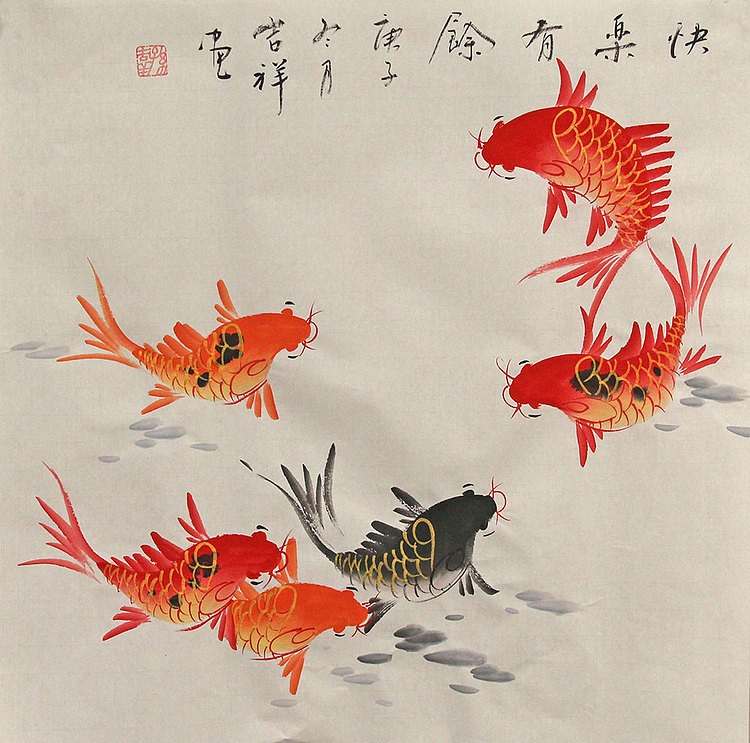 快樂有餘 庚子冬月吉祥畫